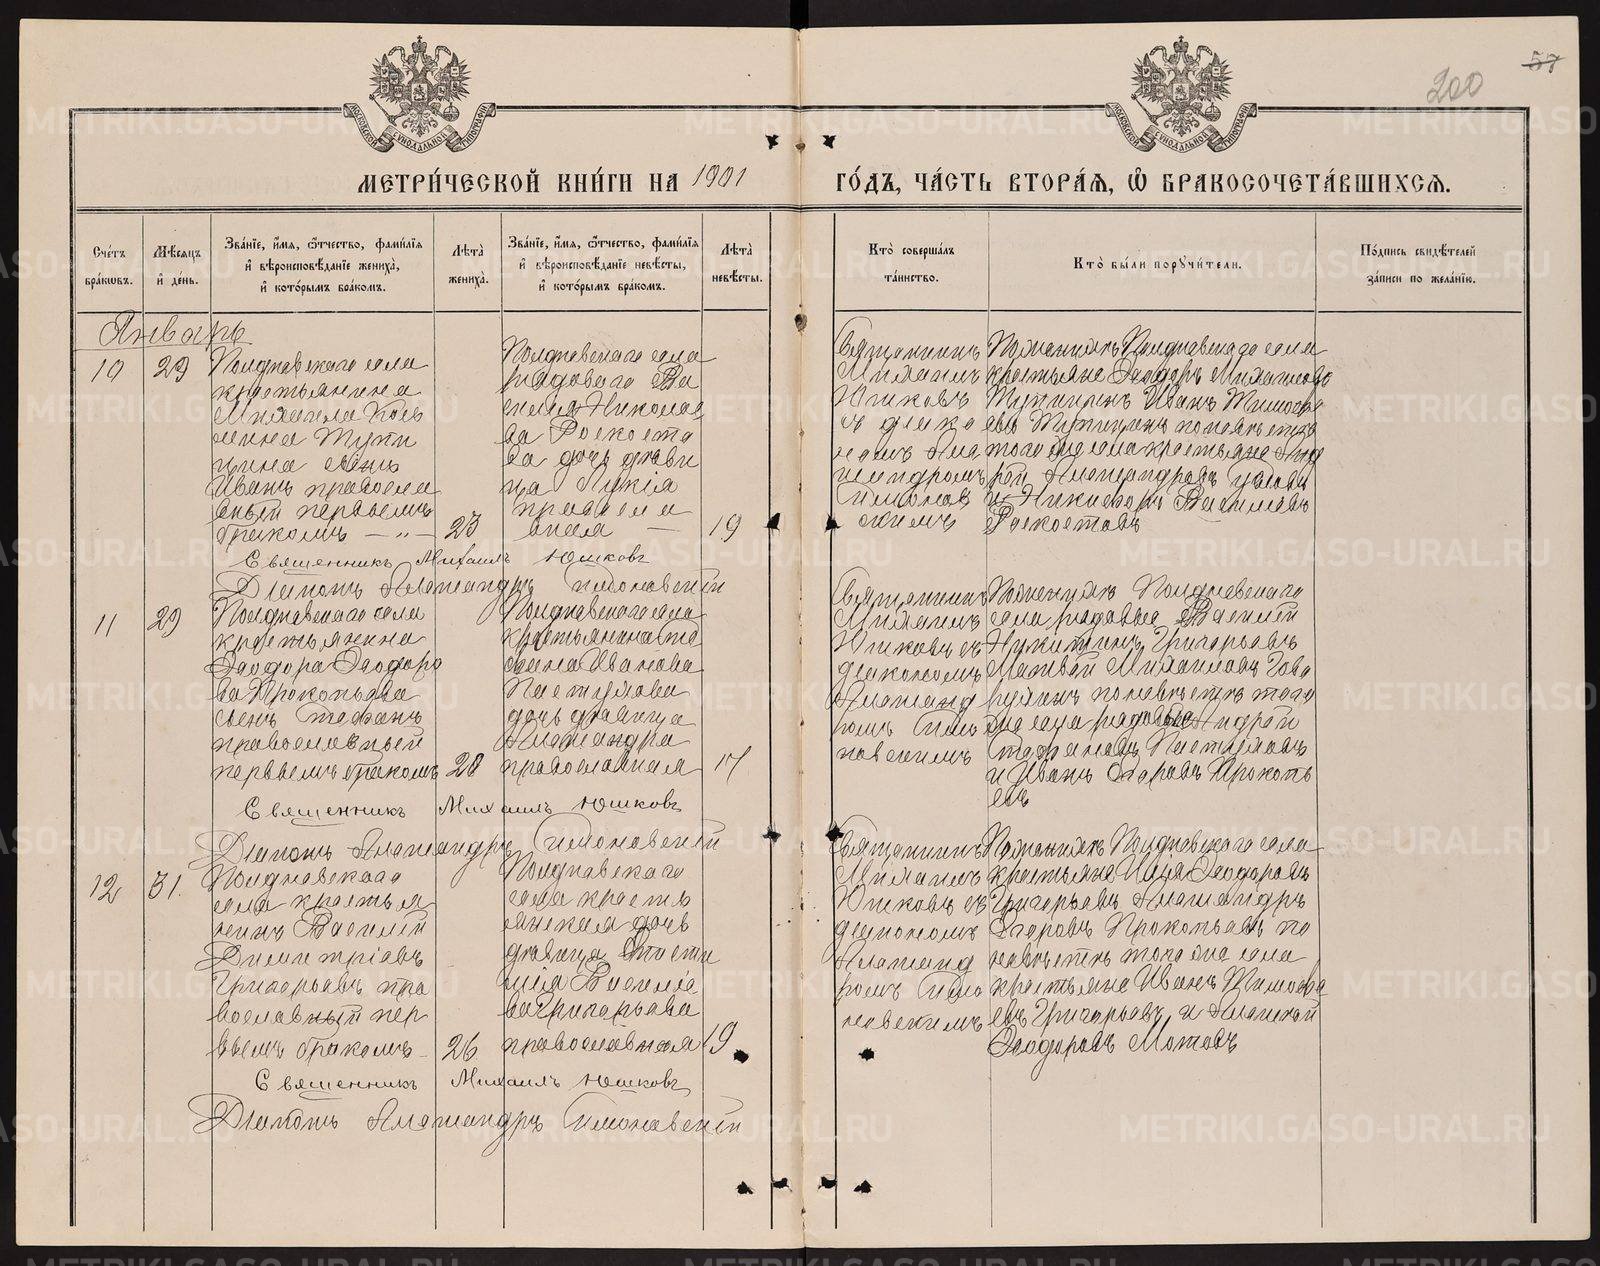 57
200
МЕТРИ́ЧЕСКОЙ КНИ́ГИ НА 1901 ГО́ДЪ, ЧА́СТЬ ВТОРА́Я, Ѿ БРАКОСОЧЕТА́ВШИХСЯ.
Сче́тъ бра́ковъ.
Мѣ́сяцъ и҆ де́нь.
Зва́нїе, и҆́мя, ѻ҆́тчество, фами́лїя и҆ вѣроисповѣ́данїе жениха̀, и҆ кото́рымъ бра́комъ.
Лѣта̀ жениха̀.
Зва́нїе, и҆́мя, ѻ҆́тчество, фами́лїя и҆ вѣроисповѣ́данїе невѣ́сты, и҆ кото́рымъ бра́комъ.
Лѣта̀ невѣ́сты.
Кто̀ соверша́лъ та́инство.
Кто̀ бы́ли поручи́тели.
По́дпись свидѣ́телей за́писи по жела́нїю.
Январь
10
29
Полдневскаго села
крестьянина
Михаила Козь
мина Тупи
цина сынъ
Иванъ правосла
вный первымъ
бракомъ — „ —
23
Полдневскаго села
рядового Ва
силия Николае
ва Роскоста
ва дочь дѣви
ца Лукія
правосла
вная —
19
Священникъ
Михаилъ
Юшковъ
съ діако
номъ Але
ксандромъ
Симонов
скимъ
По женихѣ Полдневскаго села
крестьяне Ѳеодоръ Михаиловъ
Тупицинъ Иванъ Тимофе
евъ Тупицинъ по невѣстѣ
того же села крестьяне
Александровъ
и Никифоръ Васильевъ
Роскостовъ
Священникъ Михаилъ Юшковъ
Діаконъ Александръ Симоновскій
11
29
Полдневскаго села
крестьянина
Ѳеодора Ѳеодоро
ва Прокопьева
сынъ Стефанъ
православный
первымъ бракомъ
20
Полдневскаго села
крестьянина Сте
фана Иванова
Пастухова
дочь дѣвица
Александра
православная
17
Священникъ
Михаилъ
Юшковъ съ
діакономъ
Александ
ромъ Симо
новскимъ
По женихѣ Полдневскаго
села рядовые Василій
Никитинъ Григорьевъ
Матвѣй Михаиловъ
по невѣстѣ того
же села рядовые Андрей
Стефановъ Пастуховъ
и Иванъ Егоровъ Прокопь
евъ
Священникъ Михаилъ Юшковъ
Діаконъ Александръ Симоновскій
12
31.
Полдневскаго
села крестья
нинъ Василій
Димитріевъ
Григорьевъ пра
вославный пер
вымъ бракомъ
26
Полдневскаго
села кресть
янская дочь
дѣвица Анаста
сія Василье
ва Григорьева
православная
19
Священникъ
Михаилъ
Юшковъ съ
діакономъ
Александ
ромъ Симо
новскимъ
По женихѣ Полдневскаго села
крестьяне Илья Ѳеодоровъ
Григорьевъ Александръ
Егоровъ Прокопьевъ по
невѣстѣ того же села
крестьяне Иванъ Тимофе
евъ Григорьевъ и Алексѣй
Ѳеодоровъ Мотовъ
Священникъ Михаилъ Юшковъ
Діаконъ Александръ Симоновскій
METRIKI.GASO-URAL.RU